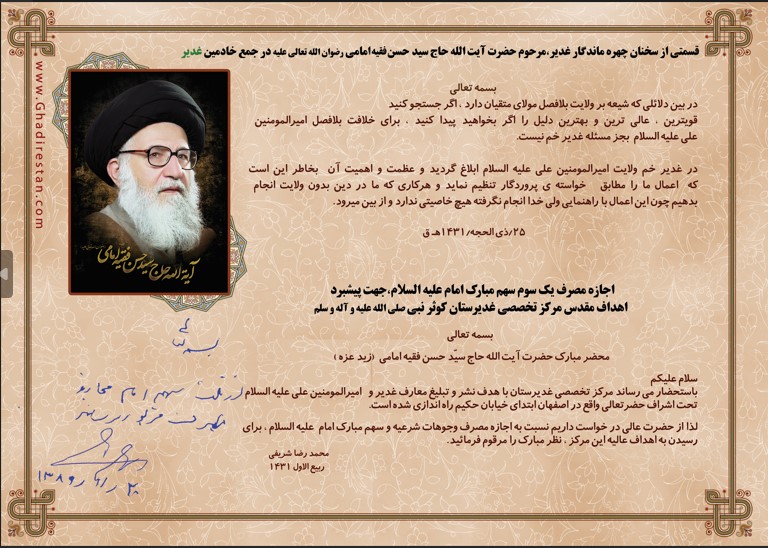 قسمتی از سخنان چهره ماندگار غدیر،مرحوم حضرت آیت الله حاج سید حسن فقیه امامی رضوان الله تعالی علیه در جمع خادمین غدیر
www.Ghadirestan.com
آیة الله حاج سید حسن فقیه امامی
بسمه تعالی
در بین دلائلی که شیعه بر ولایت بلافصل مولای متقیان دارد ، اگر جستجو کنید
قویترین ، عالی ترین و بهترین دلیل را اگر بخواهید پیدا کنید ، برای خلافت بلافصل امیرالمومنین
علی علیه السلام بجز مسئله غدیر خم نیست.
در غدیر خم ولایت امیرالمومنین علی علیه السلام ابلاغ گردید و عظمت و اهمیت آن بخاطر این است
که اعمال ما را مطابق خواسته ی پروردگار تنظیم نماید و هرکاری که ما در دین بدون ولایت انجام
بدهیم چون این اعمال با راهنمایی ولی خدا انجام نگرفته هیچ خاصیتی ندارد و از بین میرود.
۲۵/ذی الحجه/۱۴۳۱هـ ق
اجازه مصرف یک سوم سهم مبارک امام علیه السلام،جهت پیشبرد
اهداف مقدس مرکز تخصصی غدیرستان کوثر نبی صلی الله علیه و آله و سلم
بسمه تعالی
محضر مبارک حضرت آیت الله حاج سیّد حسن فقیه امامی (زید عزه)
سلام علیکم
باستحضار می رساند مرکز تخصصی غدیرستان با هدف نشر و تبلیغ معارف غدیر و امیرالمومنین علی علیه السلام
تحت اشراف حضرتعالی واقع در اصفهان ابتدای خیابان حکیم راه اندازی شده است.
لذا از حضرت عالی در خواست داریم نسبت به اجازه مصرف وجوهات شرعیه و سهم مبارک امام علیه السلام ، برای
رسیدن به اهداف عالیه این مرکز ، نظر مبارک را مرقوم فرمائید.
محمد رضا شریفی
ربیع الاول ۱۴۳۱
بسمه تعالی
سهم امام مجازند
۱۳۸۹